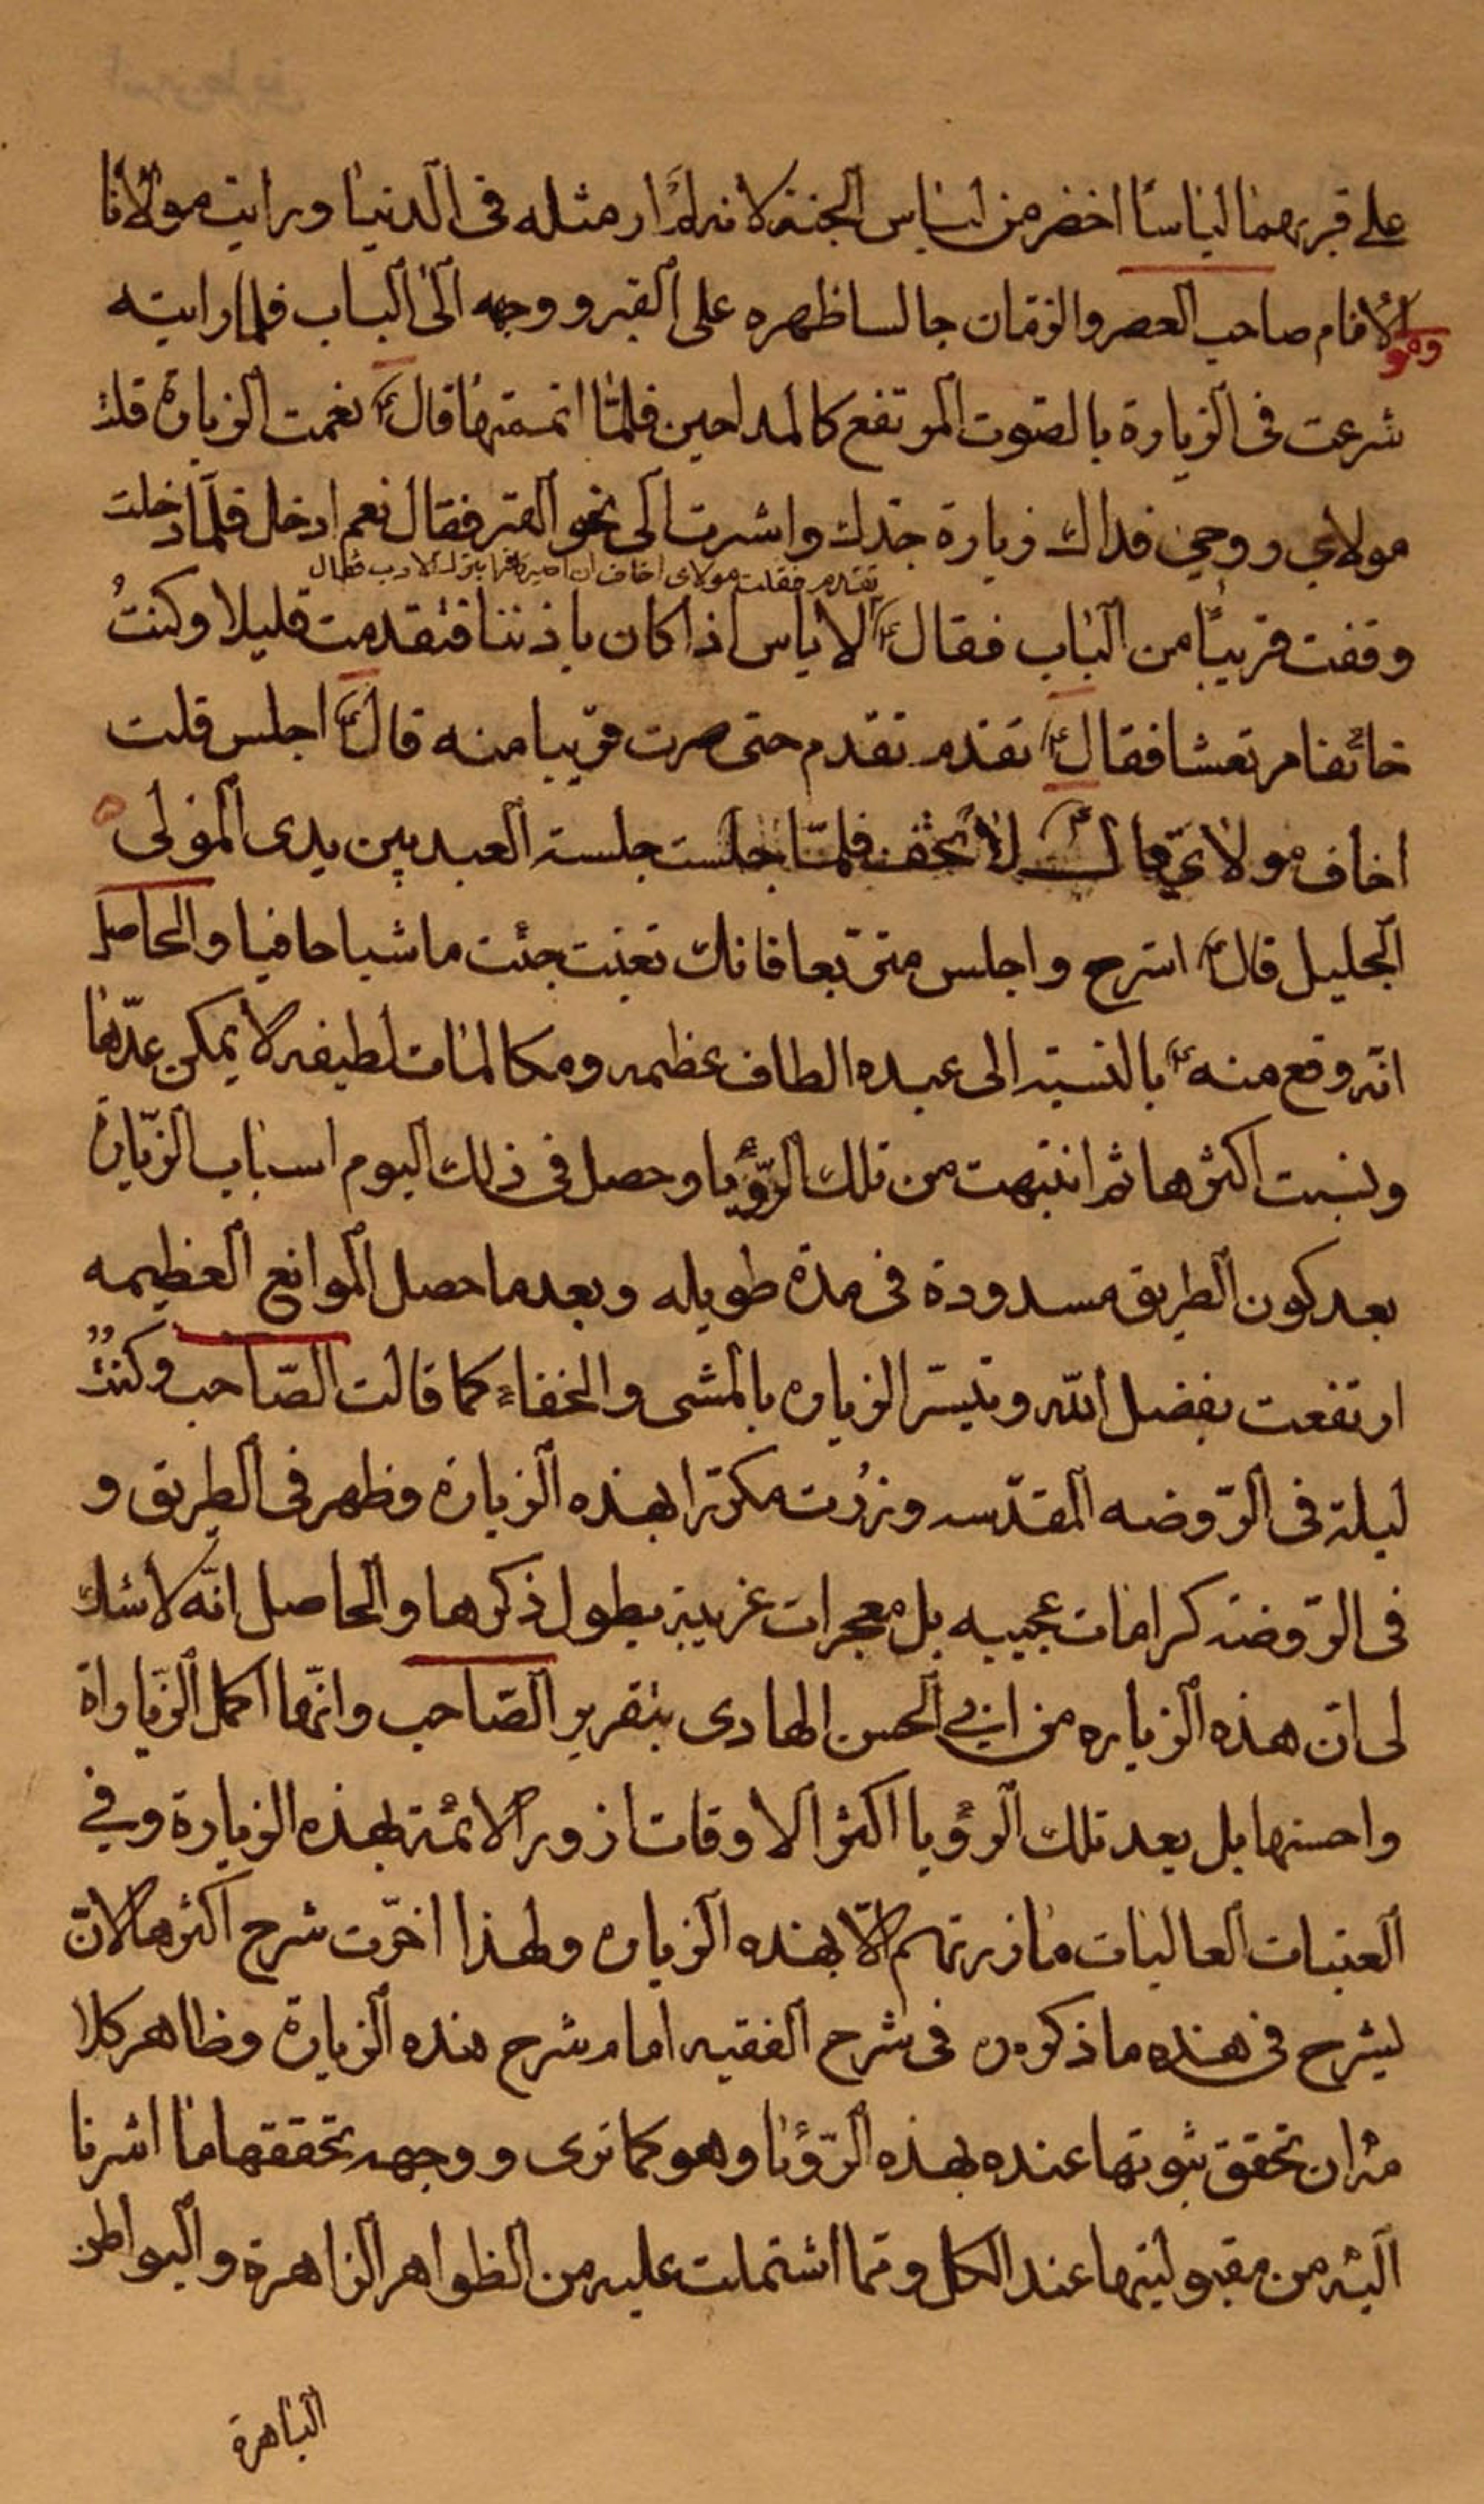 على قبريهما لباسا اخضر من لباس الجنة لانه لم ار مثله فى الدنيا ورايت مولانا
ومو
الامام صاحب العصر والزمان جالسا ظهره على القبر ووجهه الى الباب فلما رايته
شرعت فى الزيارة بالصوت المرتفع كالمداحين فلما اتممتها قال ع نعمت الزيارة قلت
مولاي روحي فداك زيارة جدك واشرت الى نحو القبر فقال نعم ادخل فلما دخلت
تقدم فقلت مولاى اخاف ان اصير كافرا بترك الادب فقال
وقفت قريبا من الباب فقال ع لا باس اذا كان باذننا فتقدمت قليلا وكنت
خائفا مرتعشا فقال ع تقدم تقدم حتى صرت قريبا منه قال ع اجلس قلت
اخاف مولاي قال ع لا تخف فلما جلست جلسة العبد بين يدى المولى
الجليل قال ع استرح واجلس متربعا فانك تعبت جئت ماشيا حافيا والحاصل
انه وقع منه ع بالنسبة الى عبده الطاف عظيمه ومكالمات لطيفه لا يمكن عدها
ونسيت اكثرها ثم انتبهت من تلك الرؤيا وحصل فى ذلك اليوم اسباب الزيارة
بعد كون الطريق مسدودة فى مدة طويله وبعد ما حصل الموانع العظيمه
ارتفعت بفضل الله وتيسر الزيارة بالمشى والحفاء كما قالت الصاحب وكنت
ليلة فى الروضه المقدسه وزرت مكررا بهذه الزيارة وظهر فى الطريق و
فى الروضة كرامات عجيبه بل معجرات غريبة يطول ذكرها والحاصل انه لا شك
لى ان هذه الزياره من ابي الحسن الهادى بتقرير الصاحب وانها اكمل الزيارات
واحسنها بل بعد تلك الرؤيا اكثر الاوقات ازور الائمة بهذه الزيارة وفي
العتبات العاليات ما زرتهم الا بهذه الزيارة ولهذا اخرت شرح اكثرها لان
ليشرح فى هذه ما ذكره فى شرح الفقيه امام شرح هذه الزيارة وظاهر كلا
مه ان تحقق ثبوتها عنده بهذه الرؤيا وهو كما ترى ووجهه تحققها ما اشرنا
اليه من مقبوليتها عند الكل ومما اشتملت عليه من الظواهر الزاهرة والبواطن
الباهرة